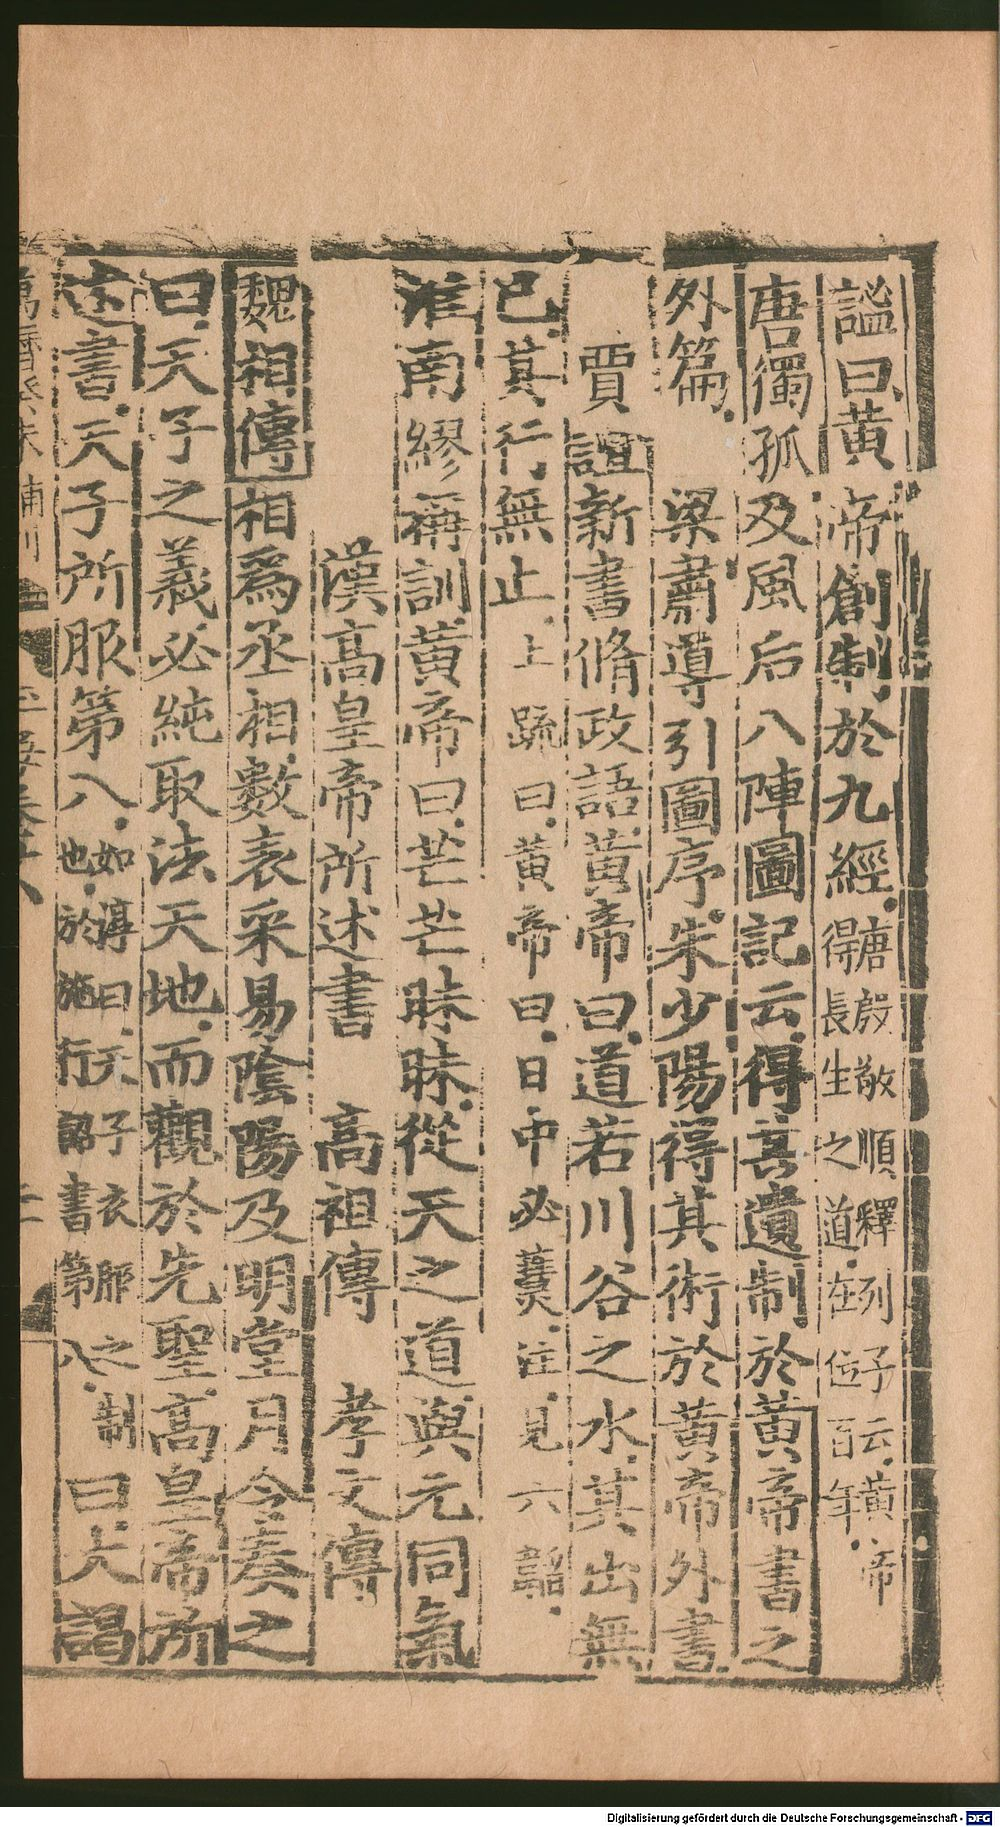 謚曰黄帝創制於九經唐殷敬順釋列子云黄帝得長生之道在位百年
唐獨孤及風后八陣圖記云得其遺制於黄帝書之
外篇 梁肅導引圖序朱少陽得其術於黄帝外書
賈誼新書脩政語黄帝曰道若川谷之水其出無
已其行無止上疏曰黄帝曰日中必㸂注見六韜
淮南繆稱訓黄帝曰芒芒昧昧從天之道與元同氣
漢高皇帝所述書 高祖傳 孝文傳
魏相傳相爲丞相數表采易陰陽及明堂月令奏之
曰天子之義必純取法天地而觀於先聖高皇帝所
述書天子所服第八如淳曰天子衣服之制也於施行詔書第八曰大謁
Digitalisierung gefördert durch die Deutsche Forschungsgemeinschaft - DFG